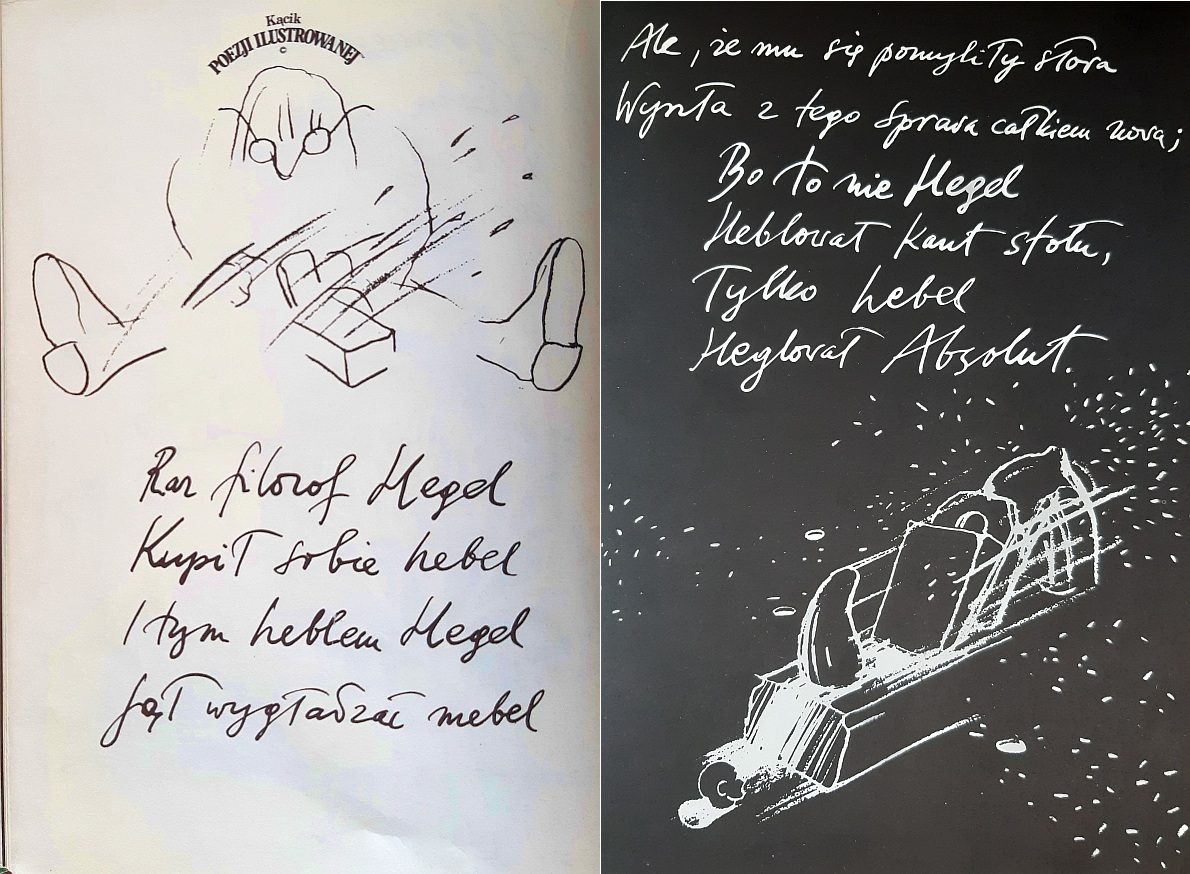 Kącik
POEZJI ILUSTROWANEJ
©
Raz filozof Hegel
Kupił sobie hebel
I tym heblem Hegel
Jął wygładzać mebel
Ale, że mu się pomyliły słowa
Wyszła z tego sprawa całkiem nowa;
Bo to nie Hegel
Heblował kant stołu,
Tylko hebel
Heglował Absolut.